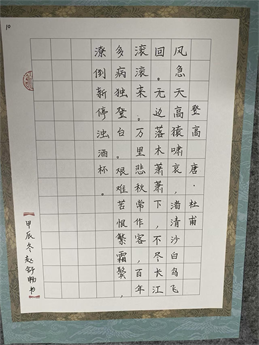 登高 唐·杜甫
风急天高猿啸哀，渚清沙白鸟飞
回。无边落木萧萧下，不尽长江
滚滚来。万里悲秋常作客，百年
多病独登台。艰难苦恨繁霜鬓，
潦倒新停浊酒杯。
【甲辰冬赵舒畅书】